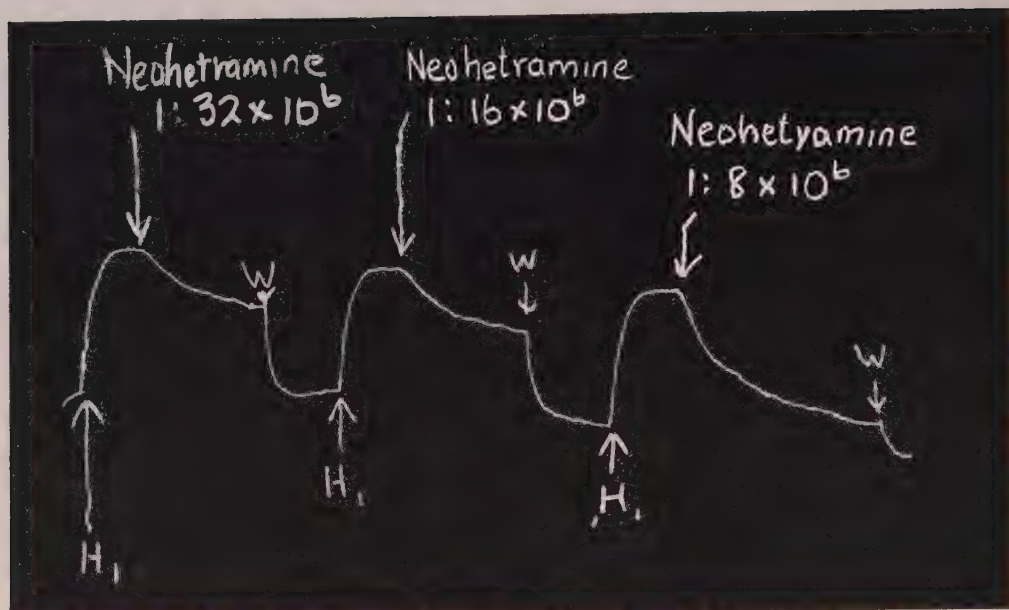 Neohetramine
1: 32 × 10⁶
Neohetramine
1: 16 × 10⁶
Neohetyamine
1: 8 × 10⁶
W
W
W
H₁
H₁
H₁